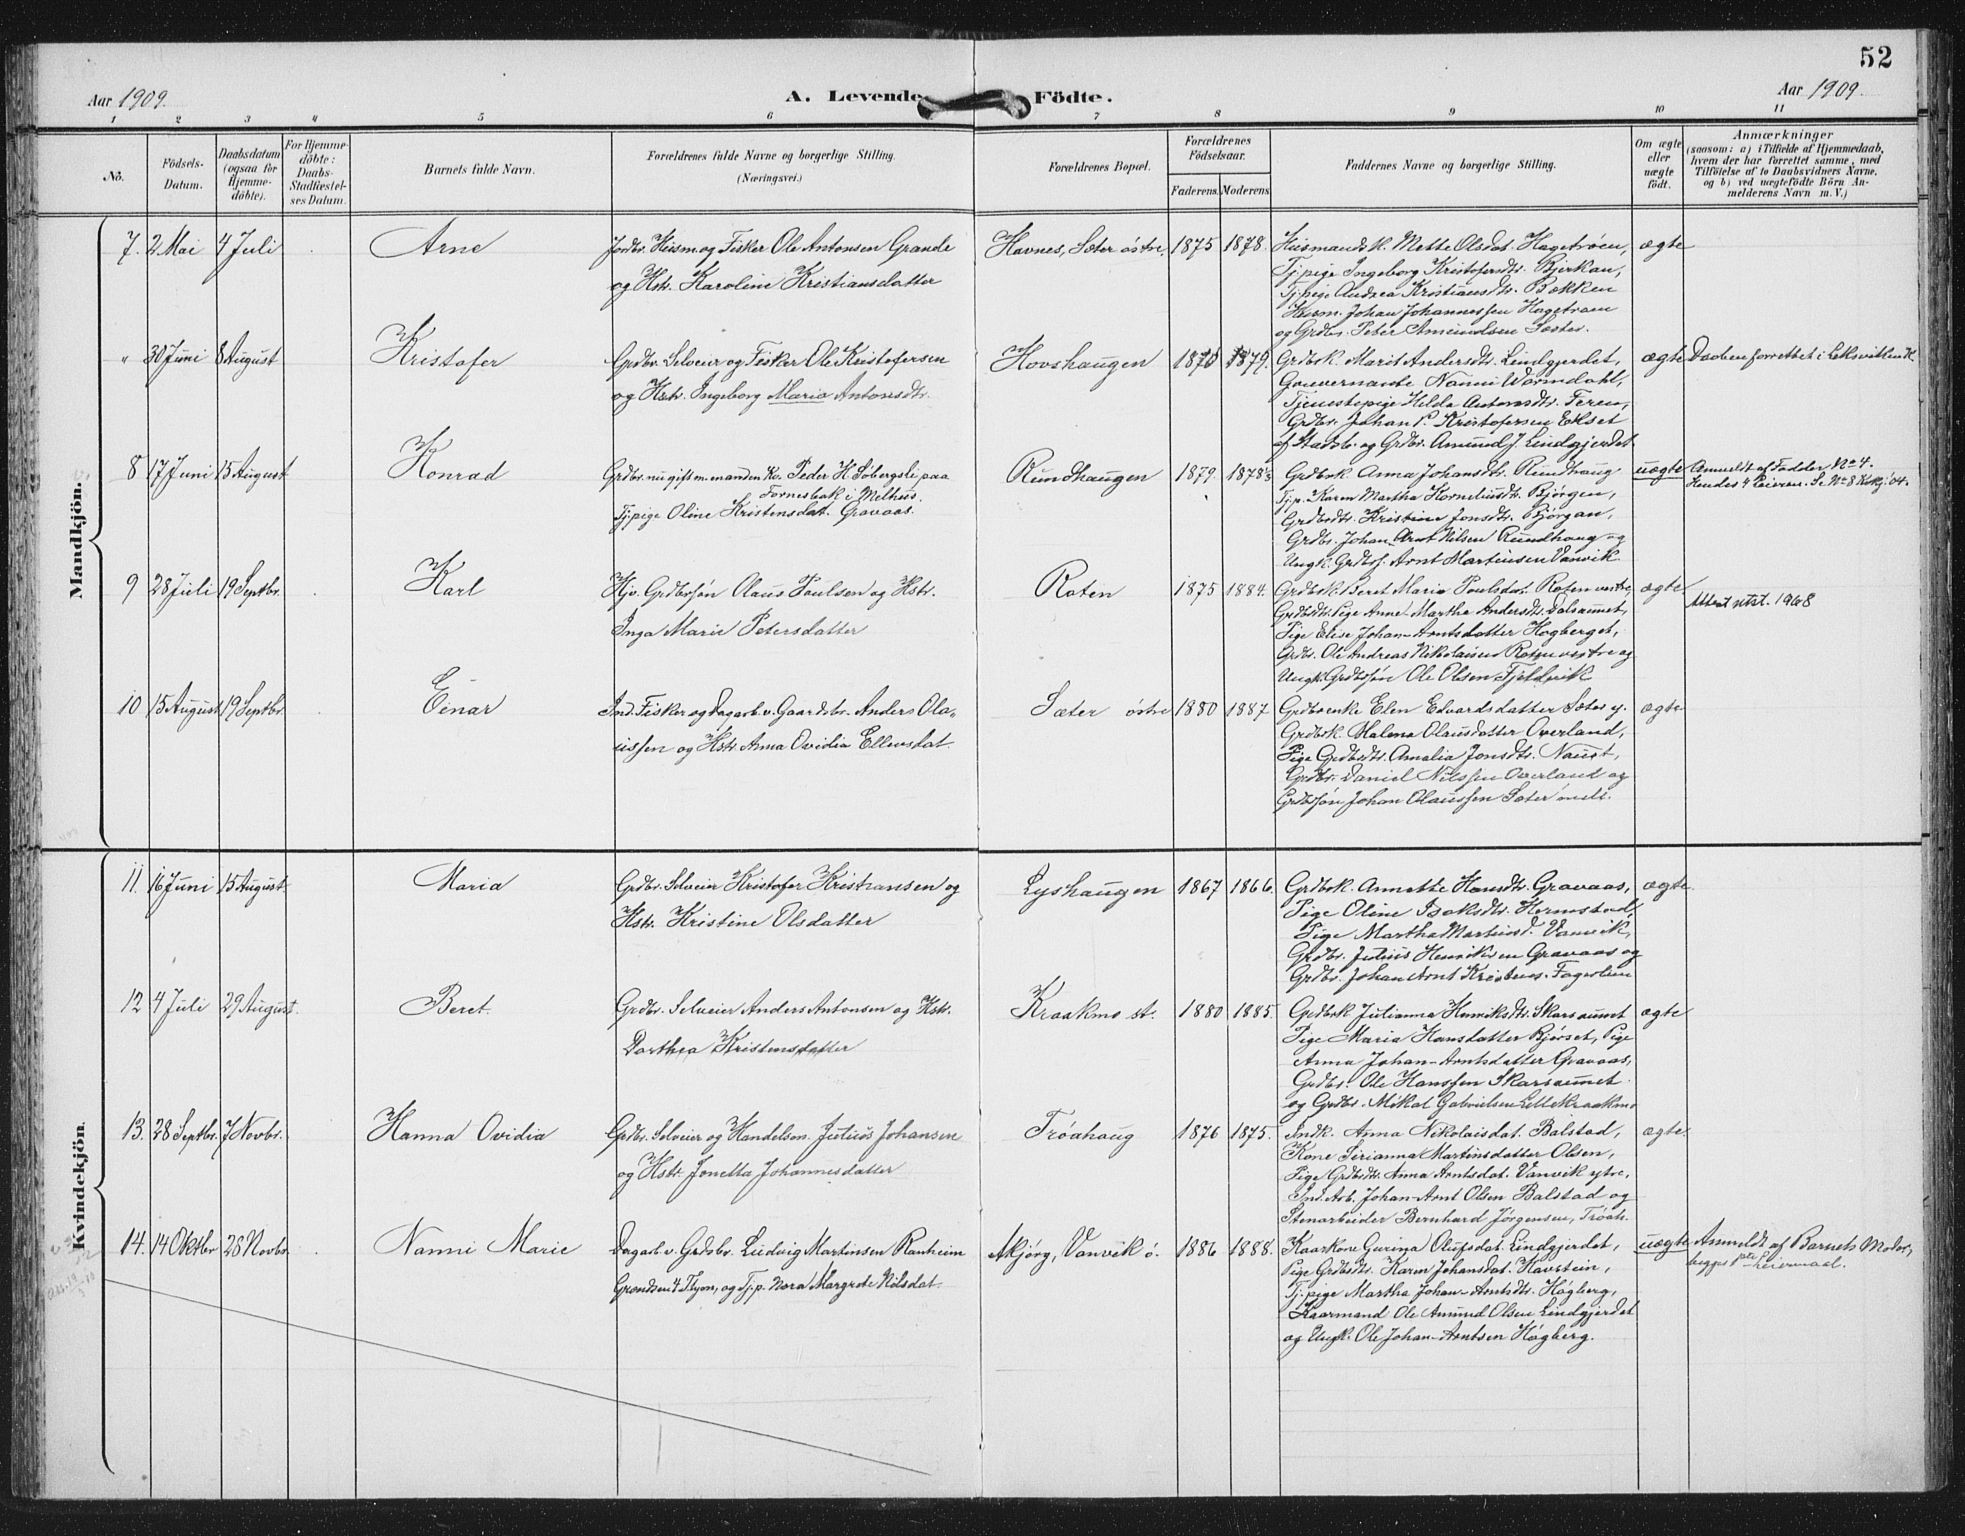 52
Aar 1909.
A. Levende Födte.
Aar 1909.
1 2 3 4 5 6 7 8 9 10 11
No.
Födsels-Datum.
Daabsdatum (ogsaa for Hjemme-döbte).
For Hjemme-döbte: Daabs-Stadfæstel-ses Datum.
Barnets fulde Navn.
Forældrenes fulde Navne og borgerlige Stilling.
(Næringsvei.)
Forældrenes Bopæl.
Forældrenes Födselsaar.
Faderens. Moderens.
Faddernes Navne og borgerlige Stilling.
Om ægte eller uægte födt.
Anmærkninger
(saasom: a) i Tilfælde af Hjemmedaab,
hvem der har forrettet samme, med
Tilföielse af to Daabsvidners Navne,
og b) ved uægtefödte Börn An-
melderens Navn m. V.)
Mandkjön.
7. 2 Mai 4 Juli Arne
Jordbr. Husm og Fisker Ole Antonsen Grande
og Hstr. Karoline Kristiansdatter
Havnes, Sæter østre. 1875 1878.
Husmandsk. Mette Olsdat. Hagetrøen,
Tj.pige Ingeborg Kristofersdtr. Bjerkan,
Tj.pige Andrea Kristiansdtr. Bækken
Husm. Johan Johannessen Hagetrøen
og Grdbr. Peter Amundsen Sæter.
ægte
" 30 Juni 8 August Kristofer
Grdbr. Selveier og Fisker Ole Kristofersen
og Hstr. Ingeborg Maria Antonsdtr.
Hovshaugen 1879.
Grdbrk. Marit Andersdtr. Lindgjerdet,
Gouvernante Nanni Warmdahl,
Tjenestepige Hilda Antonsdtr. Feren,
Grdbr. Johan P. Kristofersen Ekset
af Stadsb. og Grdbr. Amund J. Lindgjerdet
ægte Daaben forrettet i Leksviken K.
8 17 Juni 15 August Konrad
Grdbr. nu gift m. anden Ko. Peder H. Solbergsli paa
Fornesbak i Melhus.
Tj.pige Oline Kristensdat. Gravaas.
Rundhaugen 1879. 1878
Grdbrk. Anna Johansdtr. Rundhaug
Tj.p. Karen Martha Korneliusdtr. Bjørgen,
Grdbrdtr. Kristine Jonsdtr. Bjørgan,
Grdbr. Johan-Arnt Nilsen Rundhaug og
Ungk. Grdbrs. Arnt Martinsen Vanvik
uægte Anmeldt af Fadder No 4.
9 28 Juli 19 Septbr. Karl
Hjv. Grdbrsøn Olaus Paulsen og Hstr.
Inga Marie Petersdatter
Roten 1875 1884.
Grdbrk. Beret Maria Poulsdat. Roten vestre,
Grdbrdtr. Pige Anne-Martha Andersdtr. Dalsaunet,
Pige Elise Johan-Arntsdatter Høgberget,
Grdbr. Ole Andreas Nikolaisen Roten vestre og
Ungk. Grdbrsøn Ole Olsen Fjeldevik
ægte. Attest utst. 1968
10 15 August 19 Septbr. Einar
Ind. Fisker og Dagarb. v. Gaardsbr. Anders Ola-
ussen og Hstr. Anna Ovidia Ellensdat.
Sæter østre 1880 1887
Grdbrenke Elen Edvardsdatter Sæter y.
Grdbrk. Malena Olausdatter Overland,
Pige Grdbrdtr. Amalia Jonsdtr. Naust,
Grdbr. Daniel Nilssen Overland og
Grdbrsøn Johan Olaussen Sæter mell.
ægte
Kvindekjön.
11. 16 Juni 15 August Maria
Grdbr. Selveier Kristofer Kristiansen og
Hstr. Kristine Olsdatter
Lyshaugen 1867 1866.
Grdbrk. Annette Hansdtr. Gravaas,
Pige Oline Isaksdtr. Hormstad,
Pige Martha Martinsd. Vanvik,
Grdbr. Julius Henriksen Gravaas og
Grdbr. Johan Arnt Kristens. Fagerlien
ægte.
12 4 Juli 29 August. Beret.
Grdbr. Selveier Anders Antonsen og Hstr.
Dorthea Kristensdatter
Kraakmo st. 1880 1885.
Grdbrk Julianna Henriksdtr. Skarsaunet
Pige Maria Hansdatter Bjørset, Pige
Anna Johan-Arntsdatter Gravaas,
Grdbr. Ole Hanssen Skarsaunet
og Grdbr. Mikal Gabrielsen Lillekraakmo
ægte
13. 28 Septbr. 7 Novbr. Hanna Ovidia
Grdbr. Selveier og Handelsm. Julius Johansen
og Hstr. Jonetta Johannesdatter
Trøahaug 1876 1875.
Indk. Anna Nikolaisdat. Balstad,
Kone Serianna Martinsdatter Olsen,
Pige Grdbrdtr. Anna Arntsdat. Vanvik ytre,
Ind. Arb. Johan-Arnt Olsen Balstad og
Stenarbeider Bernhard Jørgensen, Trøah.
ægte.
14. 14 Oktbr 28 Novbr. Nanni Marie
Dagarb. v. Grdsbr. Ludvig Martinsen Ranheim
og Tj.p. Nora Margrete Nilsdat.
Akjørg, Vanvik ø. 1886 1888.
Kaarkone Gurina Olufsdat. Lindgjerdet,
Pige Grdbrdtr. Karen Johansdat. Havstein,
Tj.pige Martha Johan-Arntsdtr. Høgberg,
Kaarmand Ole Amund Olsen Lindgjerdet
og Ungk. Ole Johan-Arntsen Høgberg.
uægte Anmeldt af Barnets Moder,
begges 1ste Leiermaal.